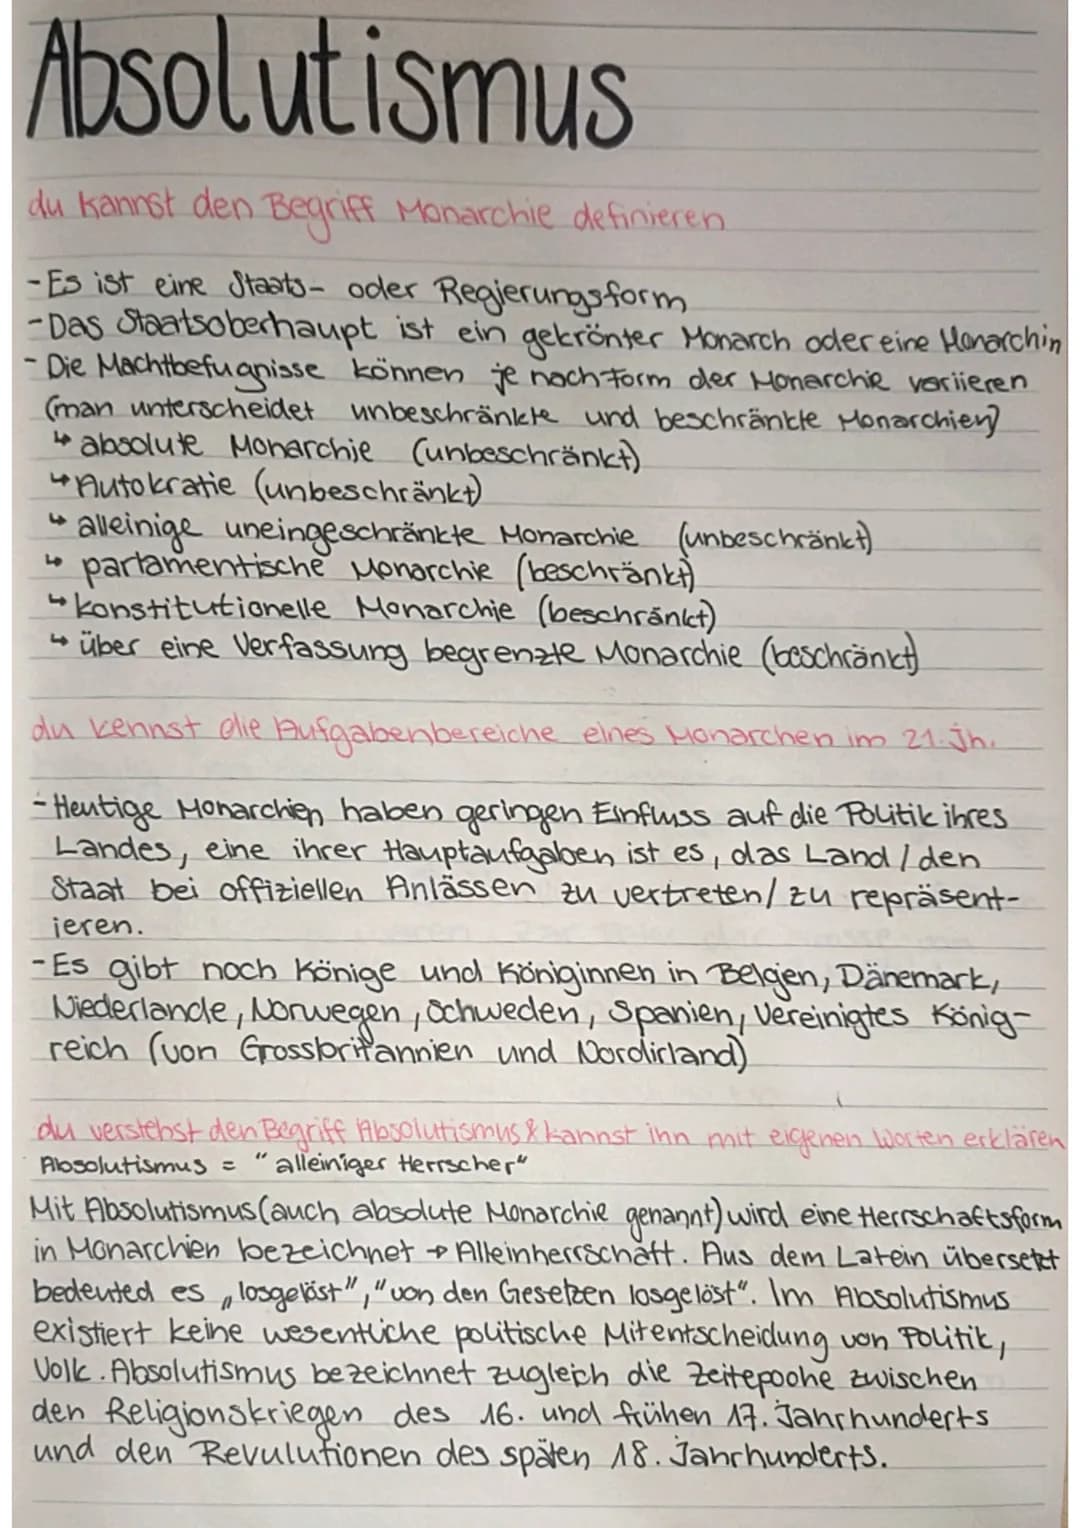 Absolutismus
du kannst den Begriff Monarchie definieren
- Es ist eine Staats- oder Regierungsform
- Das Staatsoberhaupt ist ein gekrönter Monarch oder eine Monarchin
- Die Machtbefugnisse können je nach Form der Monarchie variieren
(man unterscheidet unbeschränkte und beschränkte Monarchien)
↳ absolute Monarchie (unbeschränkt)
↳ Autokratie (unbeschränkt)
↳ alleinige uneingeschränkte Monarchie (unbeschränkt)
↳ parlamentische Monarchie (beschränkt)
↳ konstitutionelle Monarchie (beschränkt)
↳ über eine Verfassung begrenzte Monarchie (beschränkt)
du kennst die Aufgabenbereiche eines Monarchen im 21. Jh.
- Heutige Monarchien haben geringen Einfluss auf die Politik ihres
Landes, eine ihrer Hauptaufgaben ist es, das Land / den
Staat bei offiziellen Anlässen zu vertreten/ zu repräsent-
ieren.
- Es gibt noch Könige und Königinnen in Belgien, Dänemark,
Niederlande, Norwegen, Schweden, Spanien, Vereinigtes König-
reich (von Grossbritannien und Nordirland)
du verstehst den Begriff Absolutismus & kannst ihn mit eigenen Worten erklären
Absolutismus = "alleiniger Herrscher"
Mit Absolutismus (auch absolute Monarchie genannt) wird eine Herrschaftsform
in Monarchien bezeichnet → Alleinherrschaft. Aus dem Latein übersetzt
bedeuted es „losgelöst", "von den Gesetzen losgelöst". Im Absolutismus
existiert keine wesentliche politische Mitentscheidung von Politik,
Volk. Absolutismus bezeichnet zugleich die Zeitepoche zwischen
den Religionskriegen des 16. und frühen 17. Jahrhunderts
und den Revulutionen des späten 18. Jahrhunderts.